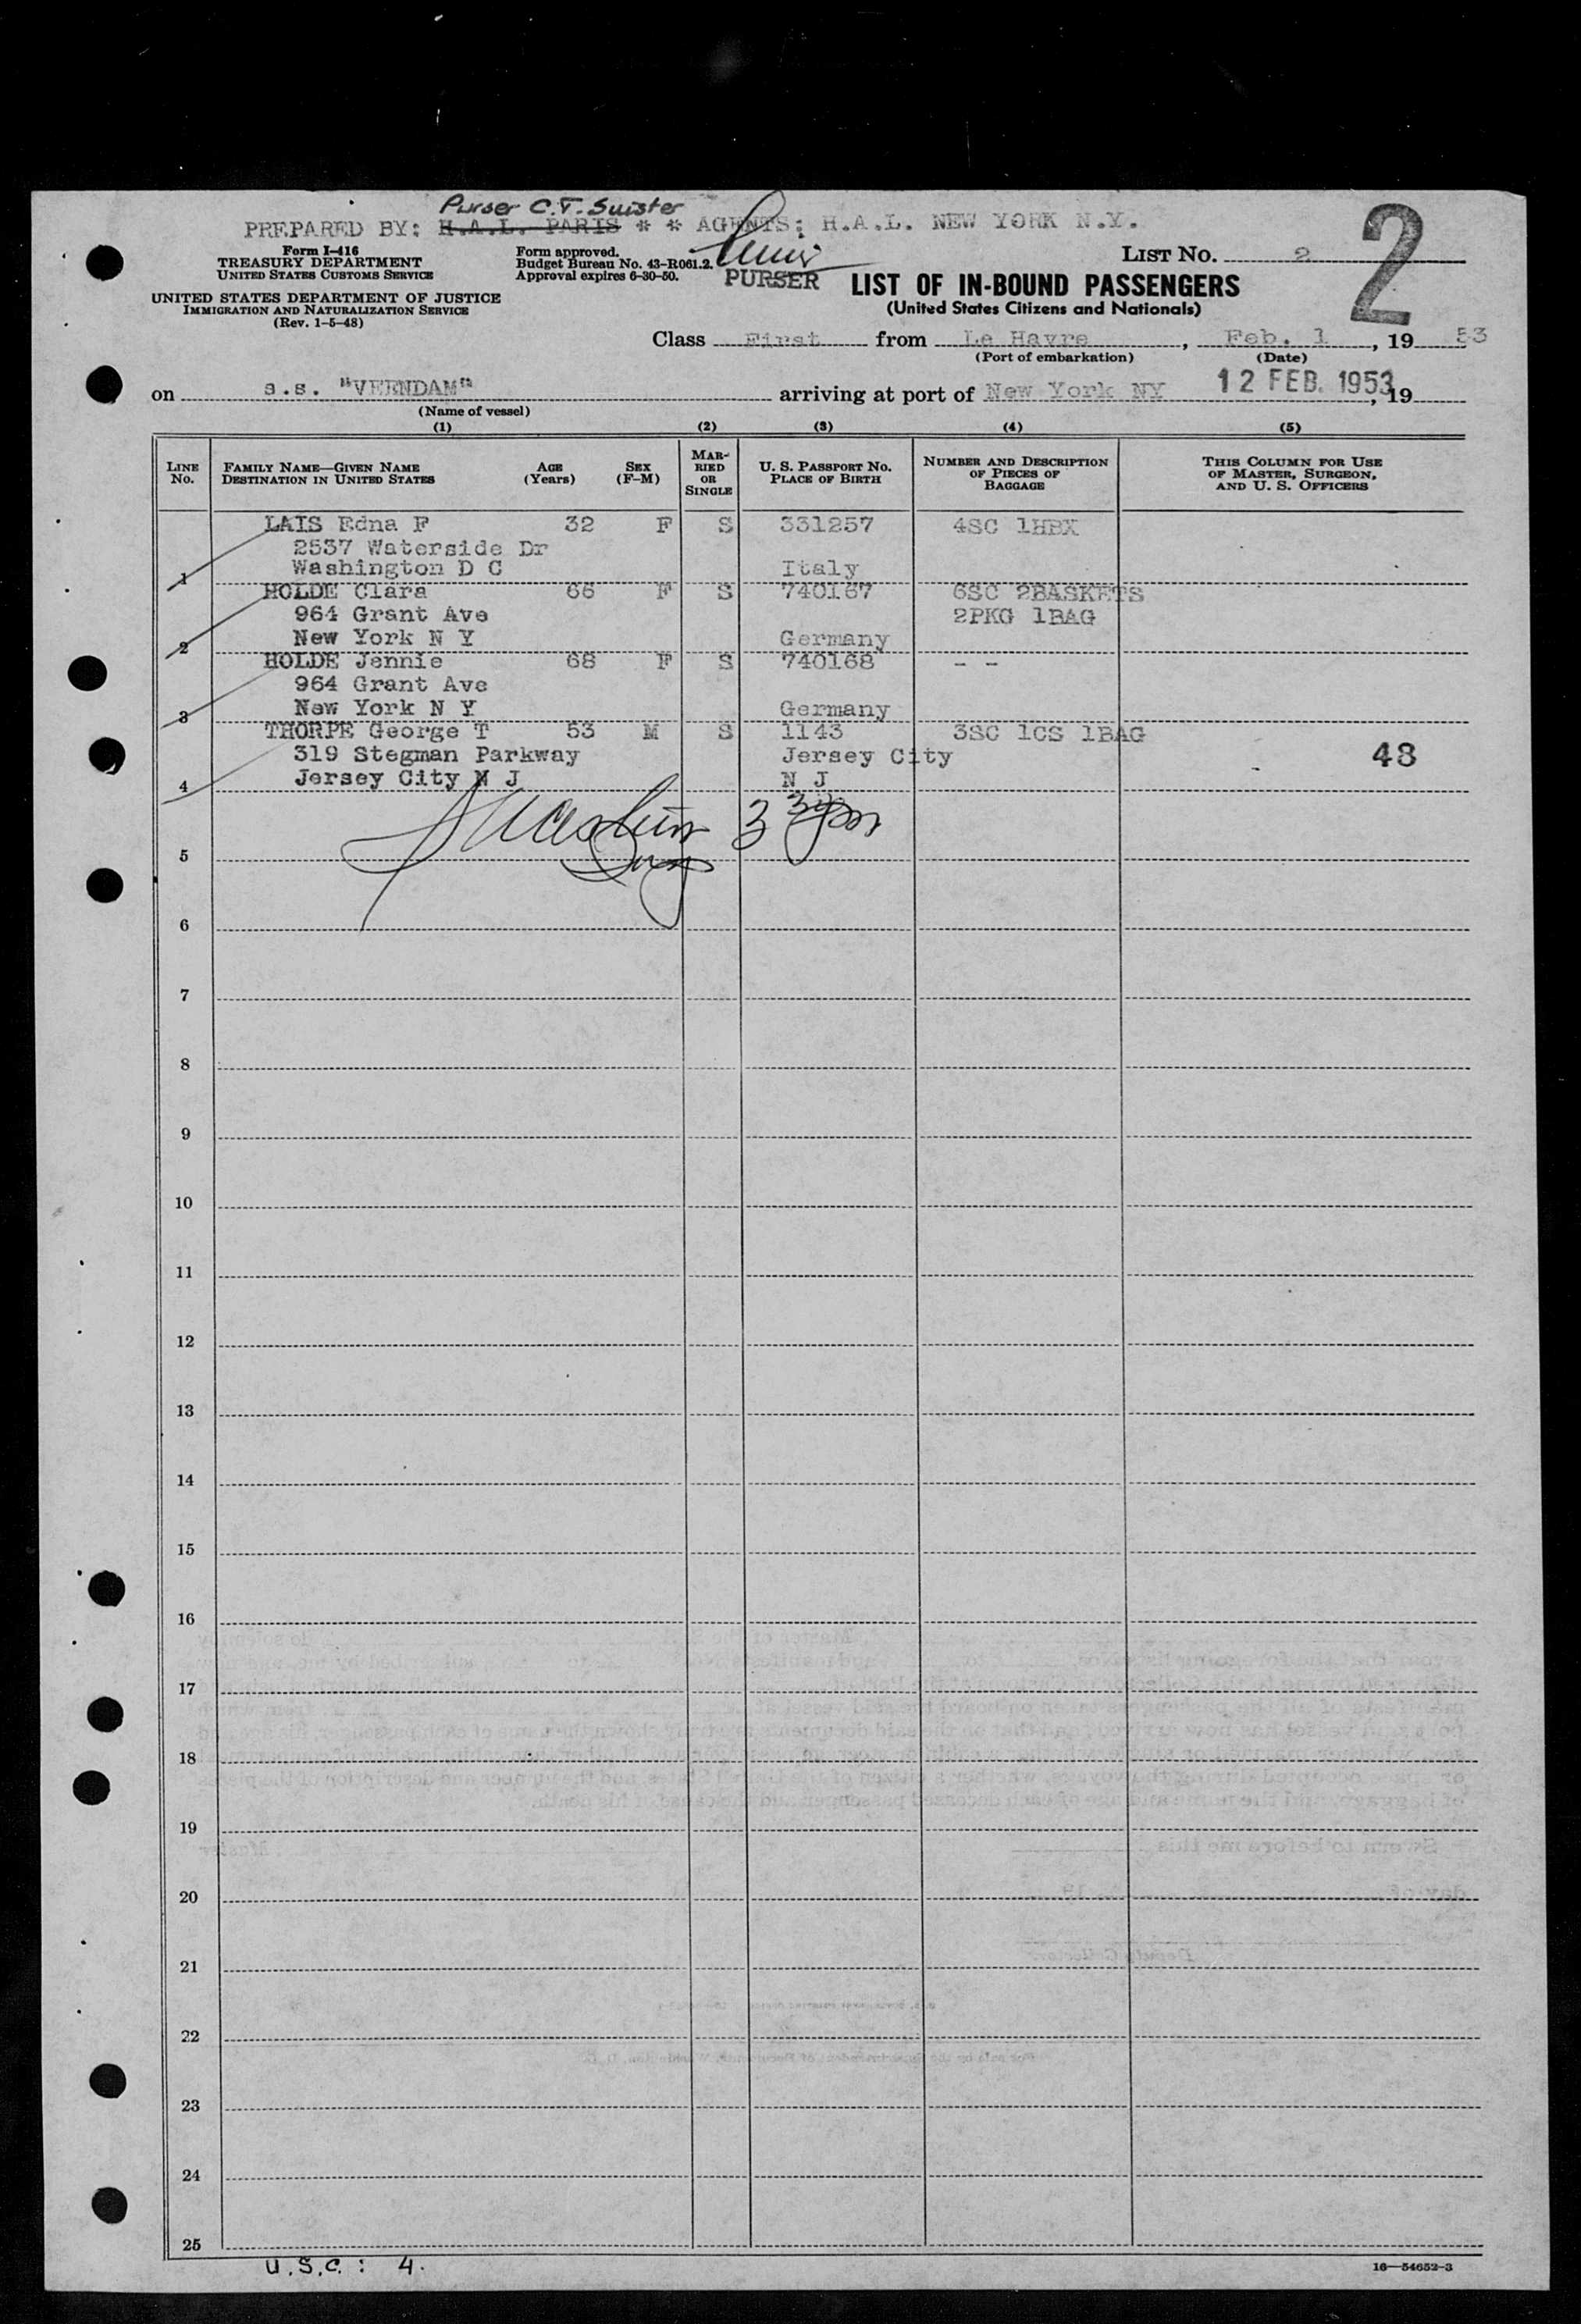 Purser C.T. Suister
PREPARED BY: H.A.L. PARIS * * AGENTS: H.A.L. NEW YORK N.Y.
Form I-416
TREASURY DEPARTMENT
UNITED STATES CUSTOMS SERVICE
UNITED STATES DEPARTMENT OF JUSTICE
IMMIGRATION AND NATURALIZATION SERVICE
(Rev. 1-5-48)
Form approved.
Budget Bureau No. 43-R061.2.
Approval expires 6-30-50.
PURSER
LIST No. 2
2
LIST OF IN-BOUND PASSENGERS
(United States Citizens and Nationals)
Class First from Le Havre, Feb. 1, 19 53
(Port of embarkation) (Date)
on s.s. "VEENDAM" arriving at port of New York NY 12 FEB. 1953, 19
(Name of vessel)
(1) (2) (3) (4) (5)
LINE No. FAMILY NAME—GIVEN NAME DESTINATION IN UNITED STATES AGE (Years) SEX (F-M) MARRIED OR SINGLE U. S. PASSPORT No. PLACE OF BIRTH NUMBER AND DESCRIPTION OF PIECES OF BAGGAGE THIS COLUMN FOR USE OF MASTER, SURGEON, AND U. S. OFFICERS
LAIS Edna F 32 F S 331257 4SC 1HBX
2537 Waterside Dr
Washington D C Italy
1
HOLDE Clara 66 F S 740167 6SC 2BASKETS
964 Grant Ave 2PKG 1BAG
New York N Y Germany
2
HOLDE Jennie 68 F S 740168 - -
964 Grant Ave
New York N Y Germany
3
THORPE George T 53 M S 1143 3SC 1CS 1BAG
319 Stegman Parkway Jersey City 48
Jersey City N J N J
4
5
6
7
8
9
10
11
12
13
14
15
16
17
18
19
20
21
22
23
24
25
U.S.C.: 4.
16—54652-3